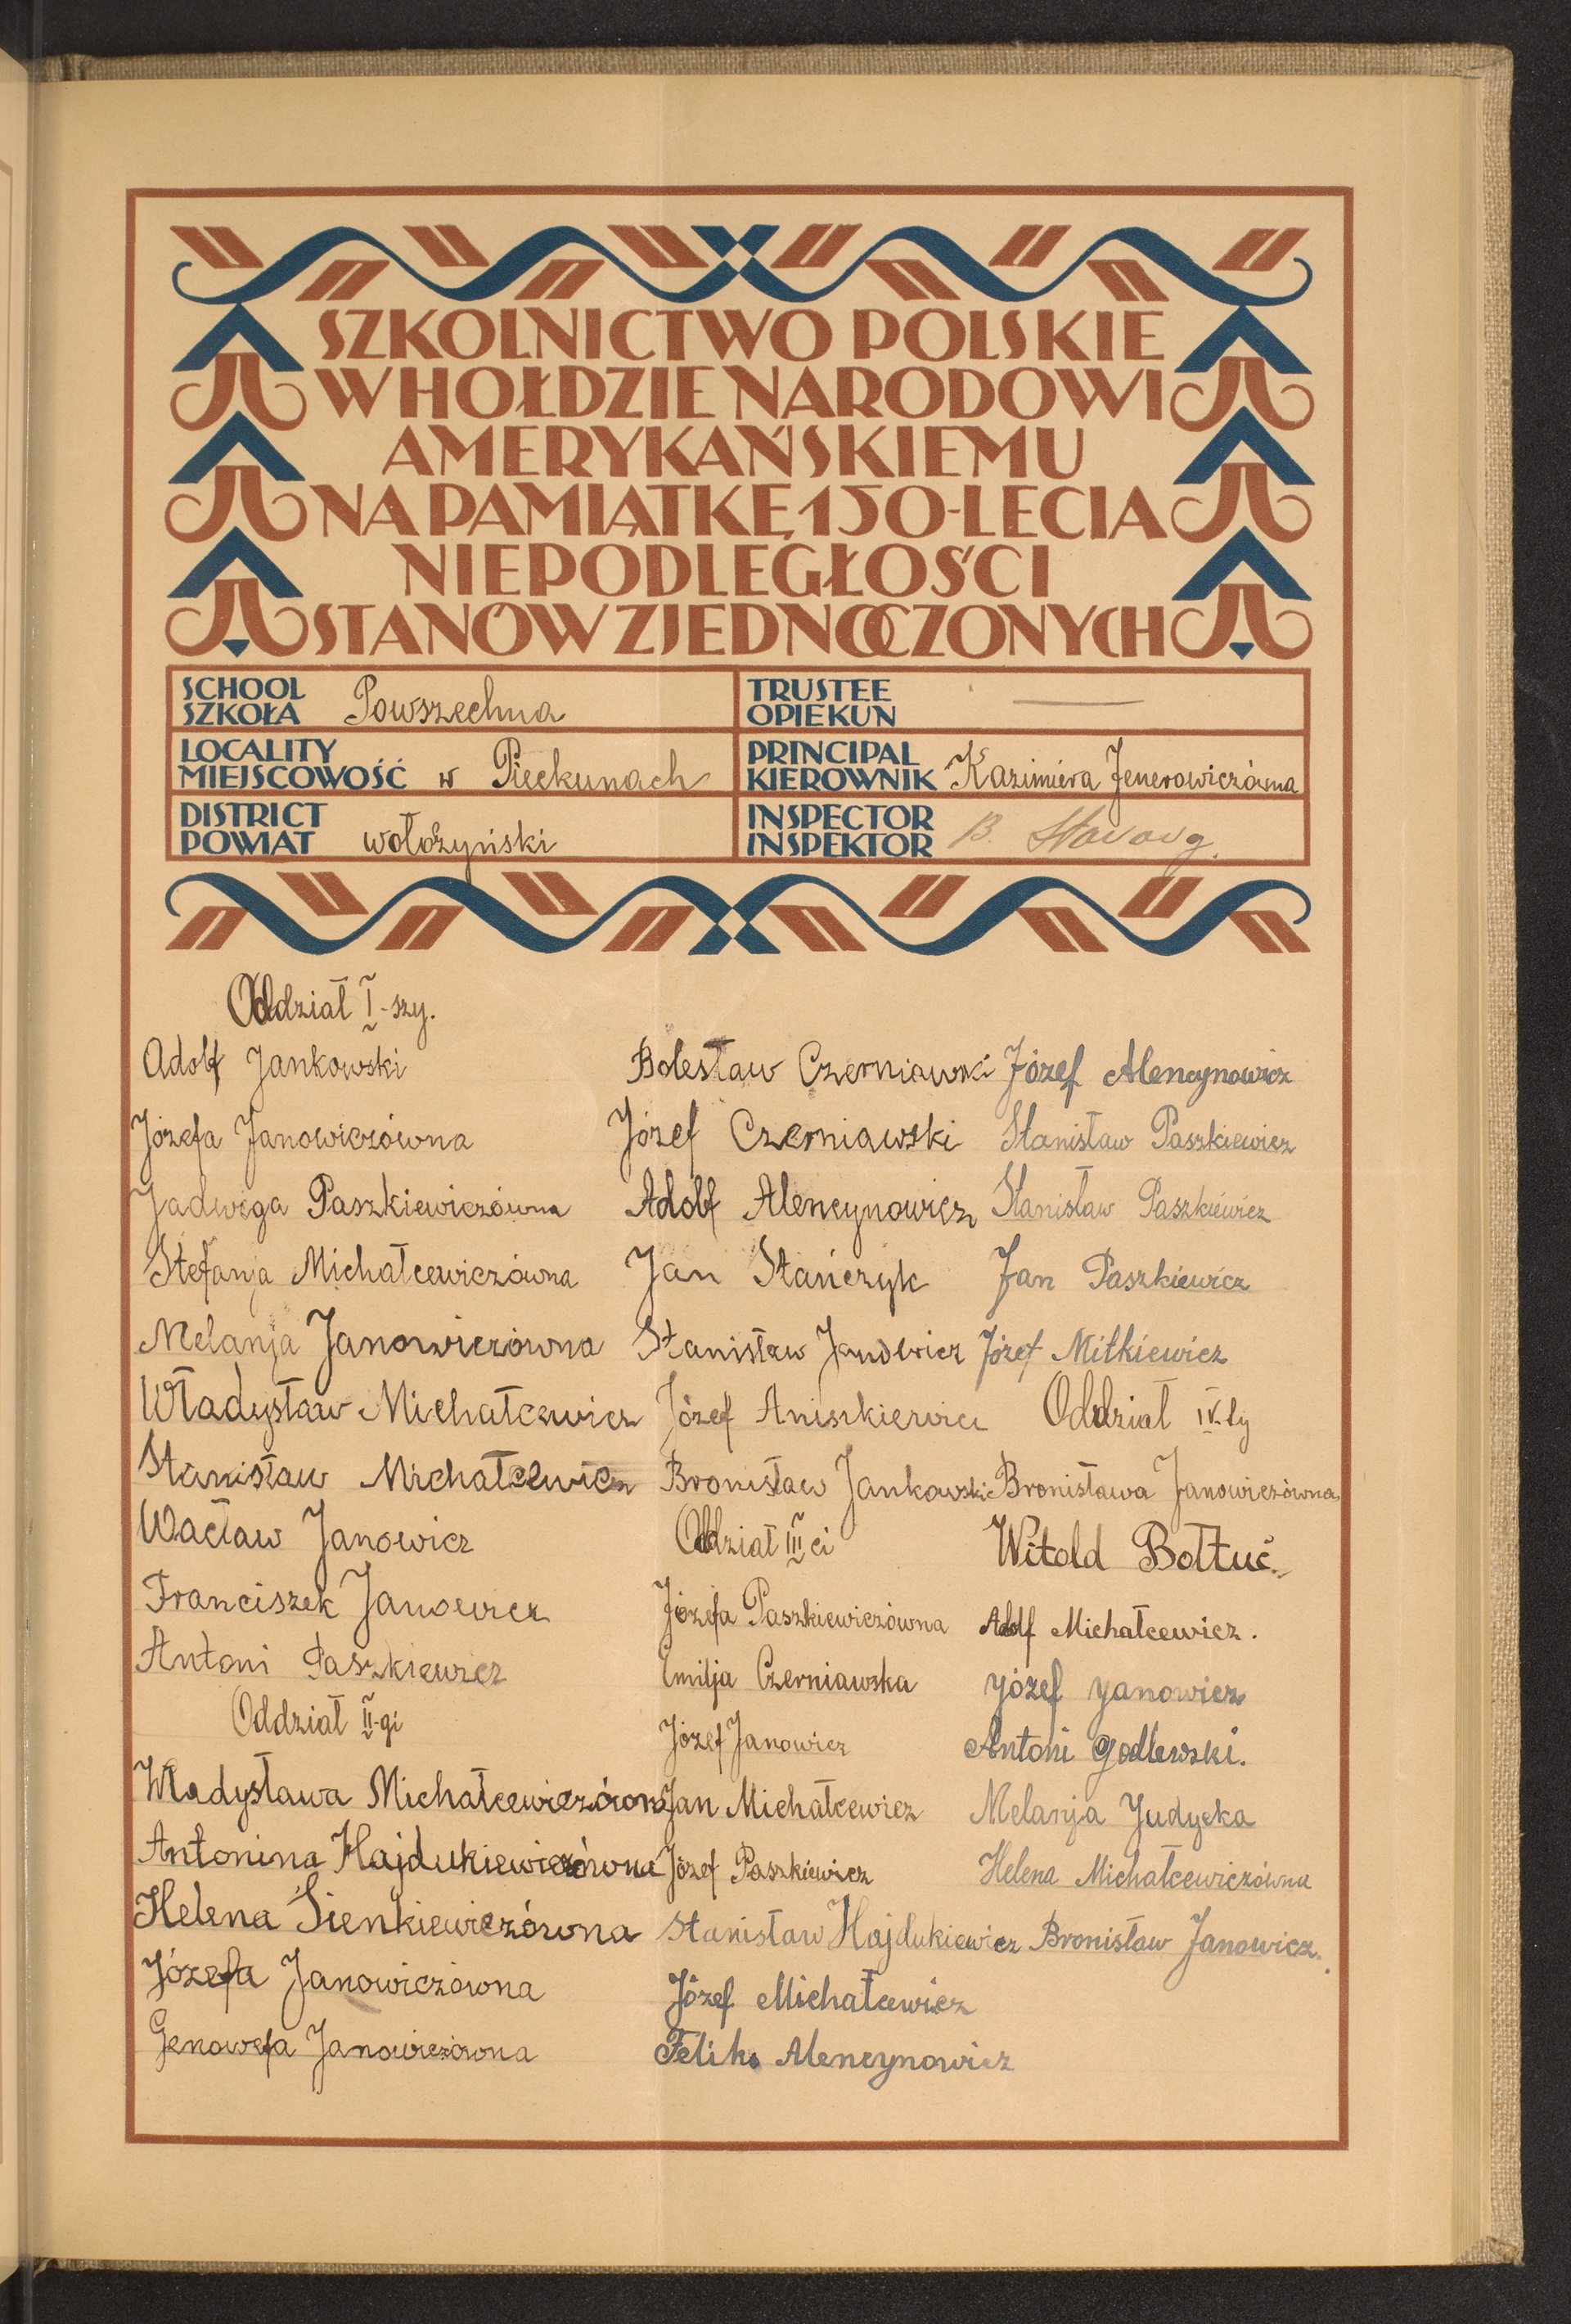 SZKOLNICTWO POLSKIE
W HOŁDZIE NARODOWI
AMERYKAŃSKIEMU
NA PAMIĄTKĘ 150-LECIA
NIEPODLEGŁOŚCI
STANÓW ZJEDNOCZONYCH
SCHOOL
SZKOŁA Powszechna
TRUSTEE
OPIEKUN —
LOCALITY
MIEJSCOWOŚĆ w Pieckunach
PRINCIPAL
KIEROWNIK Kazimiera Jenerowiczówna
DISTRICT
POWIAT wołożyński
INSPECTOR
INSPEKTOR B.
Oddział I-szy.
Adolf Jankowski
Józefa Janowiczówna
Jadwiga Paszkiewiczówna
Stefanja Michałcewiczówna
Melanja Janowiczówna
Władysław Michałcewicz
Stanisław Michałcewicz
Wacław Janowicz
Franciszek Janowicz
Antoni Paszkiewicz
Oddział II-gi
Władysława Michałcewiczówna
Antonina Hajdukiewiczówna
Helena Sienkiewiczówna
Józefa Janowiczówna
Genowefa Janowiczówna
Bolesław Czerniawski
Józef Czerniawski
Adolf Alencynowicz
Jan Stańczyk
Stanisław Janowicz
Józef Aniszkiewicz
Bronisław Jankowski
Oddział III ci
Józefa Paszkiewiczówna
Emilja Czerniawska
Józef Janowicz
Jan Michałcewicz
Józef Paszkiewicz
Stanisław Hajdukiewicz
Józef Michałcewicz
Feliks Alencynowicz
Józef Alencynowicz
Stanisław Paszkiewicz
Stanisław Paszkiewicz
Jan Paszkiewicz
Józef Mitkiewicz
Oddział IV-ty
Bronisława Janowiczówna
Witold Bołtuć.
Adolf Michałcewicz.
Józef Janowicz
Antoni Godlewski.
Melanja Judycka
Helena Michałcewiczówna
Bronisław Janowicz.